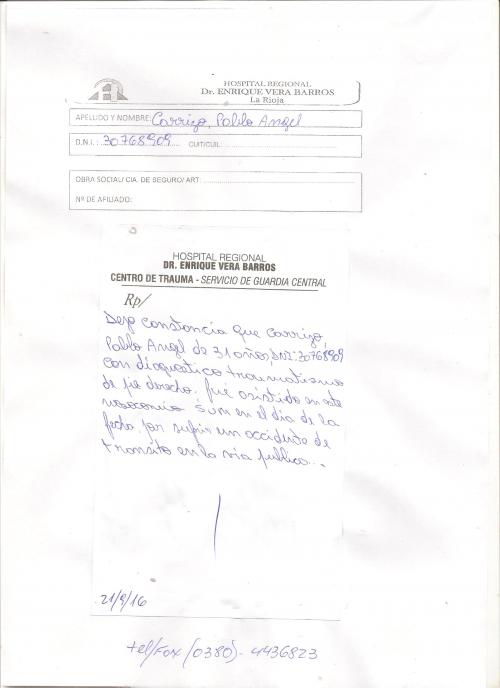 HOSPITAL REGIONAL
Dr. ENRIQUE VERA BARROS
La Rioja
APELLIDO Y NOMBRE: Carrizo, Pablo Angel
D.N.I. 30768909 CUIT/CUIL:
OBRA SOCIAL/ CIA. DE SEGURO/ ART:
Nº DE AFILIADO:
HOSPITAL REGIONAL
DR. ENRIQUE VERA BARROS
CENTRO DE TRAUMA - SERVICIO DE GUARDIA CENTRAL
Rp/
Dejo constancia que Carrizo,
Pablo Angel de 31 años, DNI: 30768909
con diagnostico traumatismo
de pie derecho. fué asistido en este
nosocomio en el dia de la
fecha por sufrir un accidente de
transito en la via publica...
21/9/16
tel/Fax (0380)- 4436823